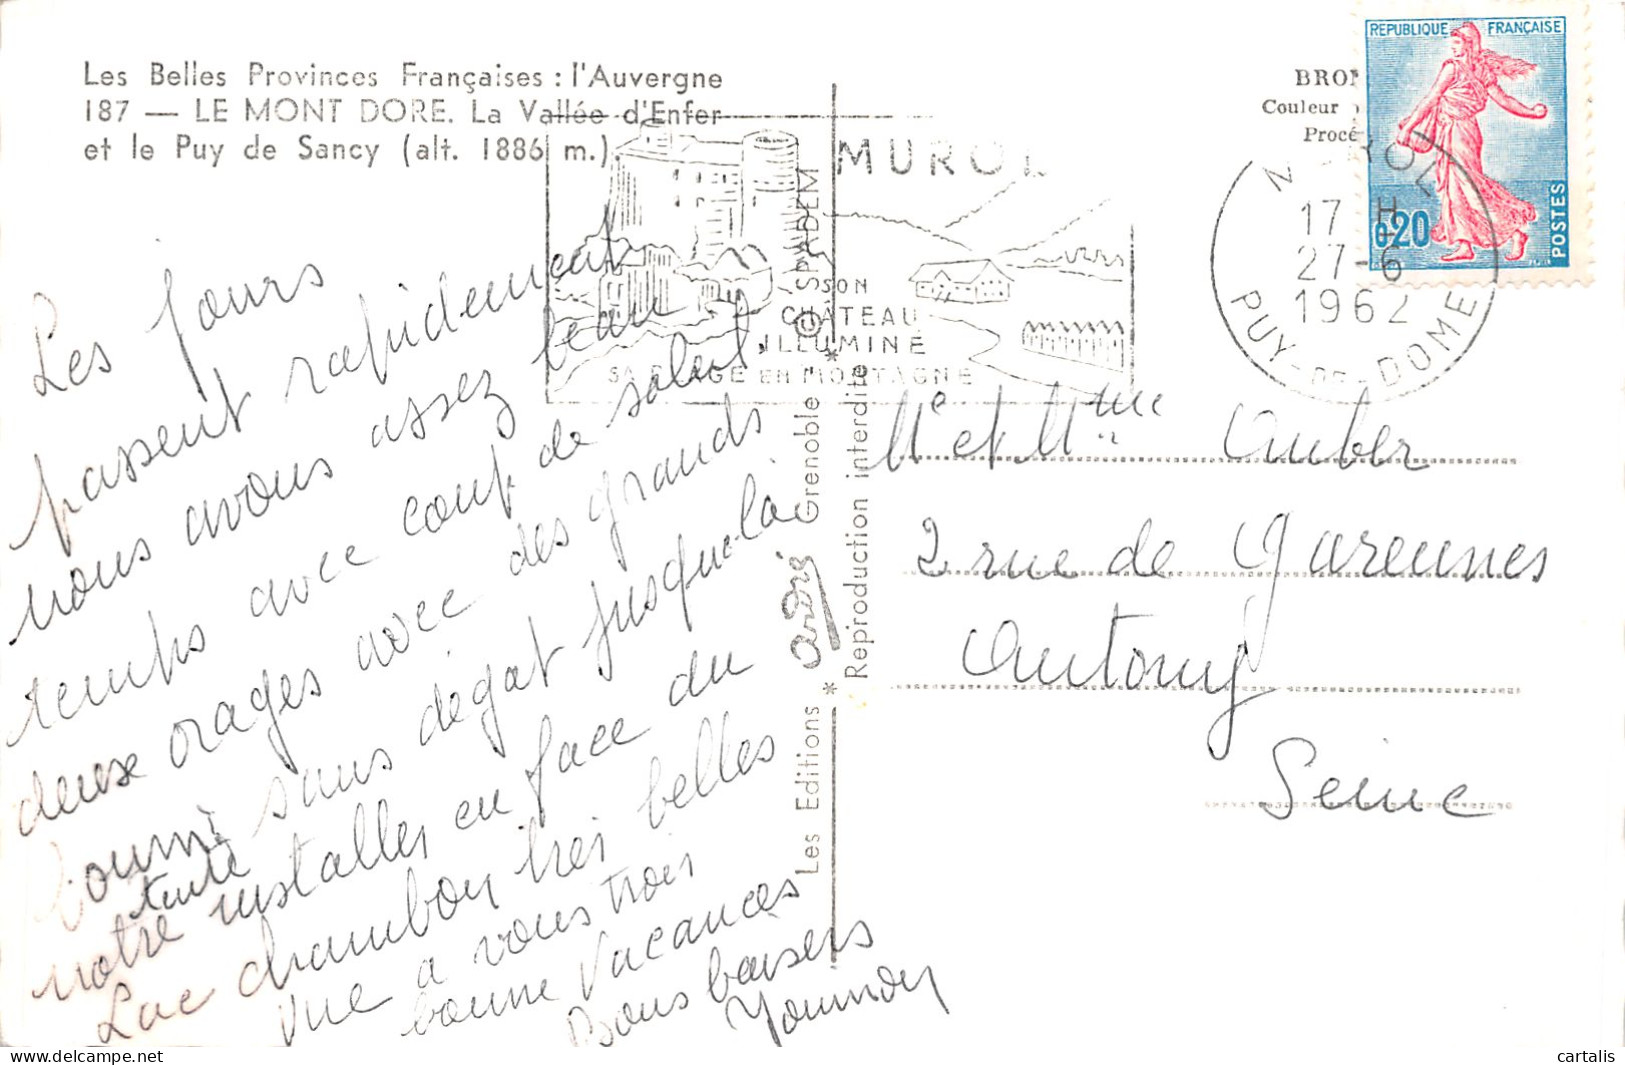 Les Belles Provinces Françaises : l'Auvergne
187 — LE MONT DORE. La Vallée d'Enfer
et le Puy de Sancy (alt. 1886 m.).
Les jours
passent rapidement
nous avons assez beau
temps avec coup de soleil.
deux orages avec des grands
sans dégat jusque-là
tente
notre installer en face du
Lac chambon très belles
vue a vous trois
bonne vacances
Bons baisers
Les Editions * André * Grenoble - © SPADEM
Reproduction interdite
MUROL
SON
CHÂTEAU
ILLUMINÉ
SA PLAGE EN MONTAGNE
BRO
Couleur
Procé
REPUBLIQUE FRANÇAISE
0,20
POSTES
MUROL
17 H
27-6
1962
PUY-DE-DOME
Mr et Mme Auber
2 rue de Garennes
Antony
Seine
cartalis